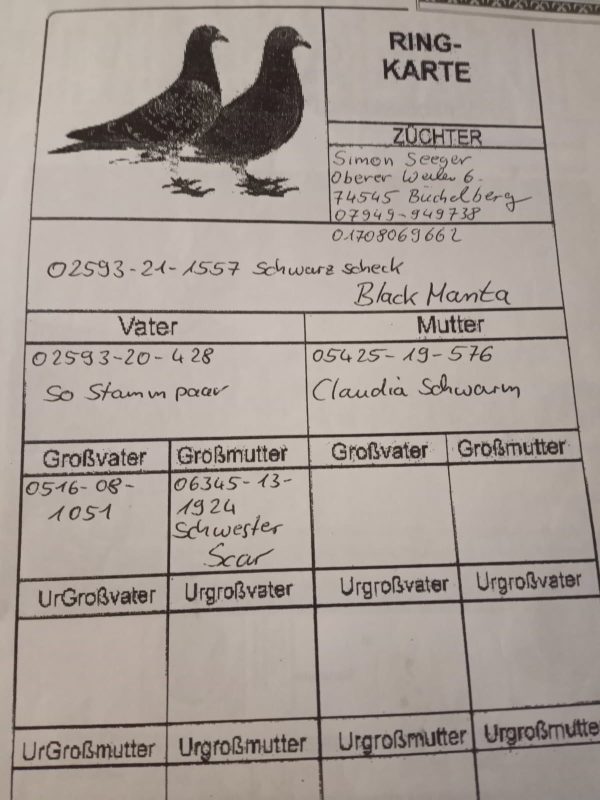 RING-
KARTE
ZÜCHTER
Simon Seeger
Oberer Weiler 6.
74545 Büchelberg
07949-949738
01708069662
02593-21-1557 Schwarz scheck
Black Manta
Vater Mutter
02593-20-428 05425-19-576
So Stammpaar Claudia Schwarm
Großvater Großmutter Großvater Großmutter
0516-08- 06345-13-
1051 1924
Schwester
Scar
UrGroßvater Urgroßvater Urgroßvater Urgroßvater
UrGroßmutter Urgroßmutter Urgroßmutter Urgroßmutter